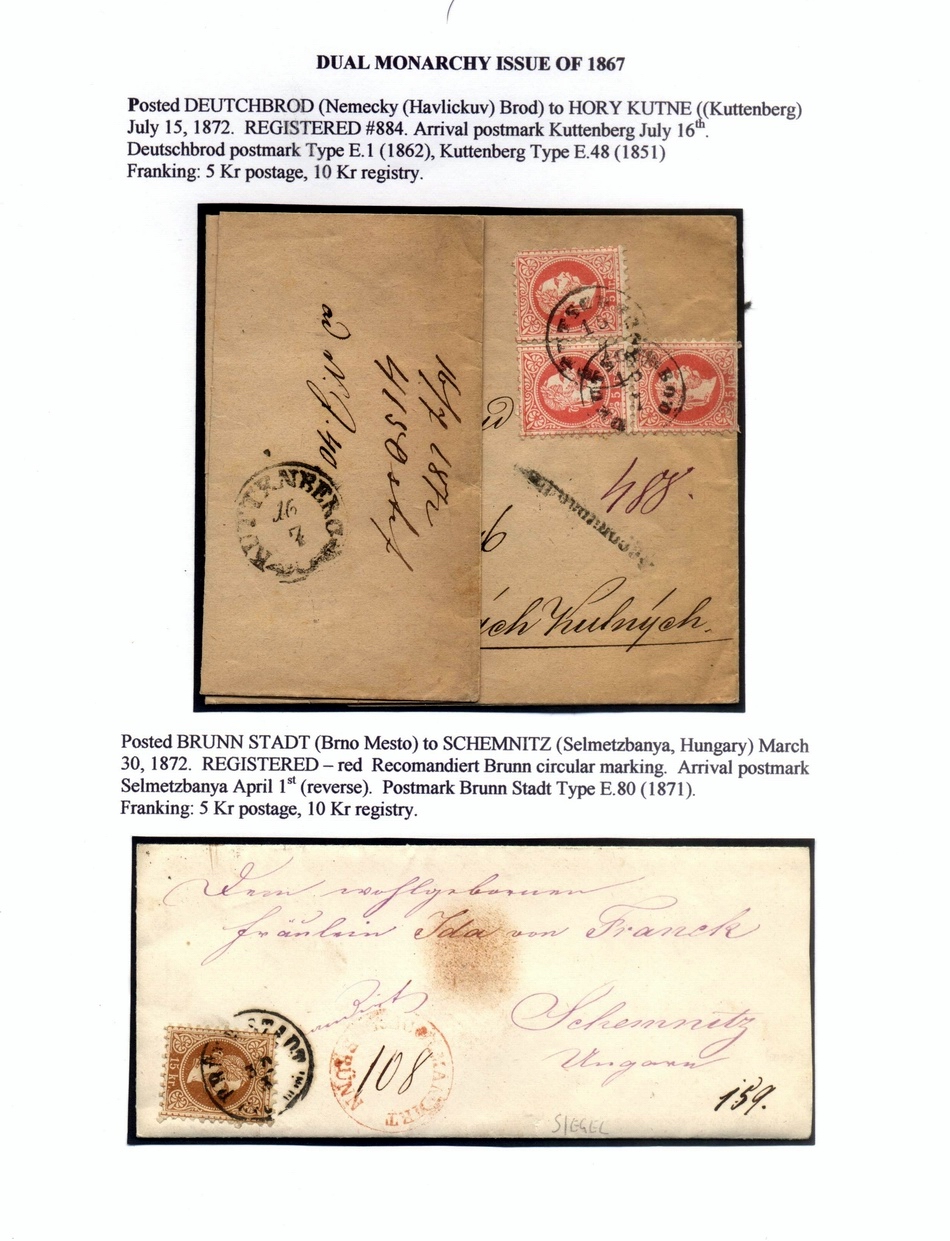 DUAL MONARCHY ISSUE OF 1867
Posted DEUTCHBROD (Nemecky (Havlickuv) Brod) to HORY KUTNE ((Kuttenberg)
July 15, 1872. REGISTERED #884. Arrival postmark Kuttenberg July 16th.
Deutschbrod postmark Type E.1 (1862), Kuttenberg Type E.48 (1851)
Franking: 5 Kr postage, 10 Kr registry.
16/7 1872
KUTTENBERG
16
7
15
488.
Kutných.
Posted BRUNN STADT (Brno Mesto) to SCHEMNITZ (Selmetzbanya, Hungary) March
30, 1872. REGISTERED – red Recomandiert Brunn circular marking. Arrival postmark
Selmetzbanya April 1st (reverse). Postmark Brunn Stadt Type E.80 (1871).
Franking: 5 Kr postage, 10 Kr registry.
Dem wohlgebornen
Fräulein Ida von Franck
Schemnitz
Ungarn
15 Kr.
STADT
BRÜNN
108
159.
SIEGEL